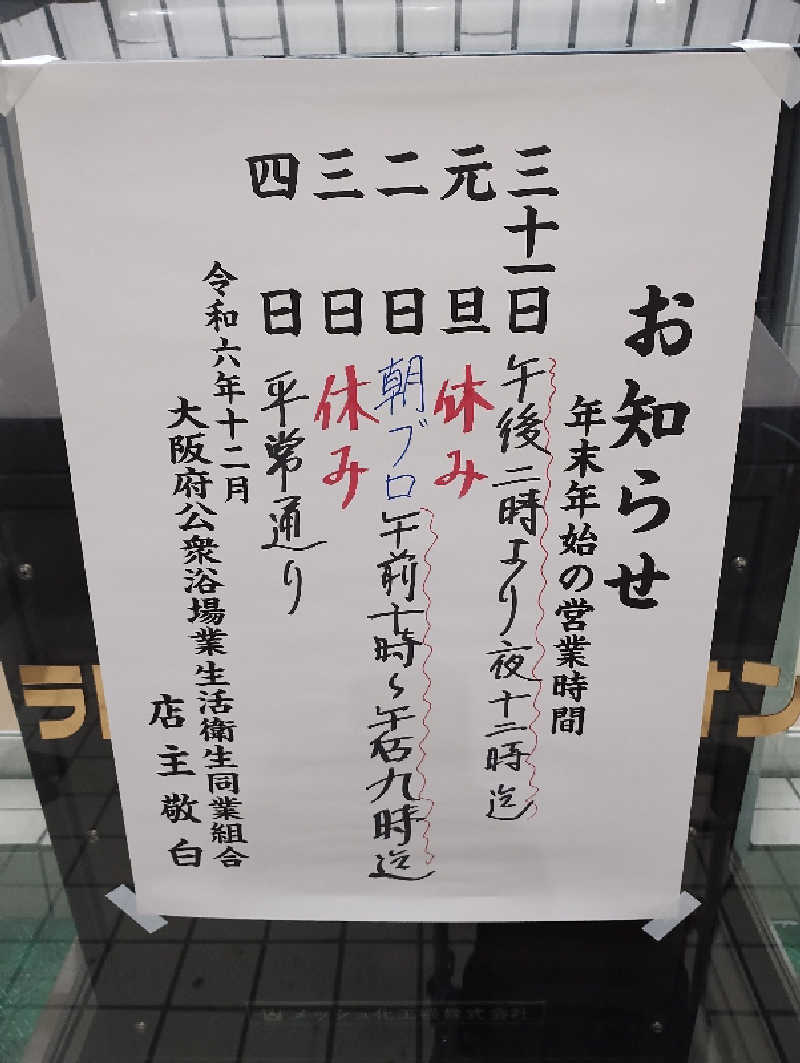 お知らせ
年末年始の営業時間
三十一日 午後二時より夜十二時迄
元旦 休み
二日 朝ブロ 午前十時～午后九時迄
三日 休み
四日 平常通り
令和六年十二月
大阪府公衆浴場業生活衛生同業組合
店主敬白
ラ
オン
メッシュ化工株式会社